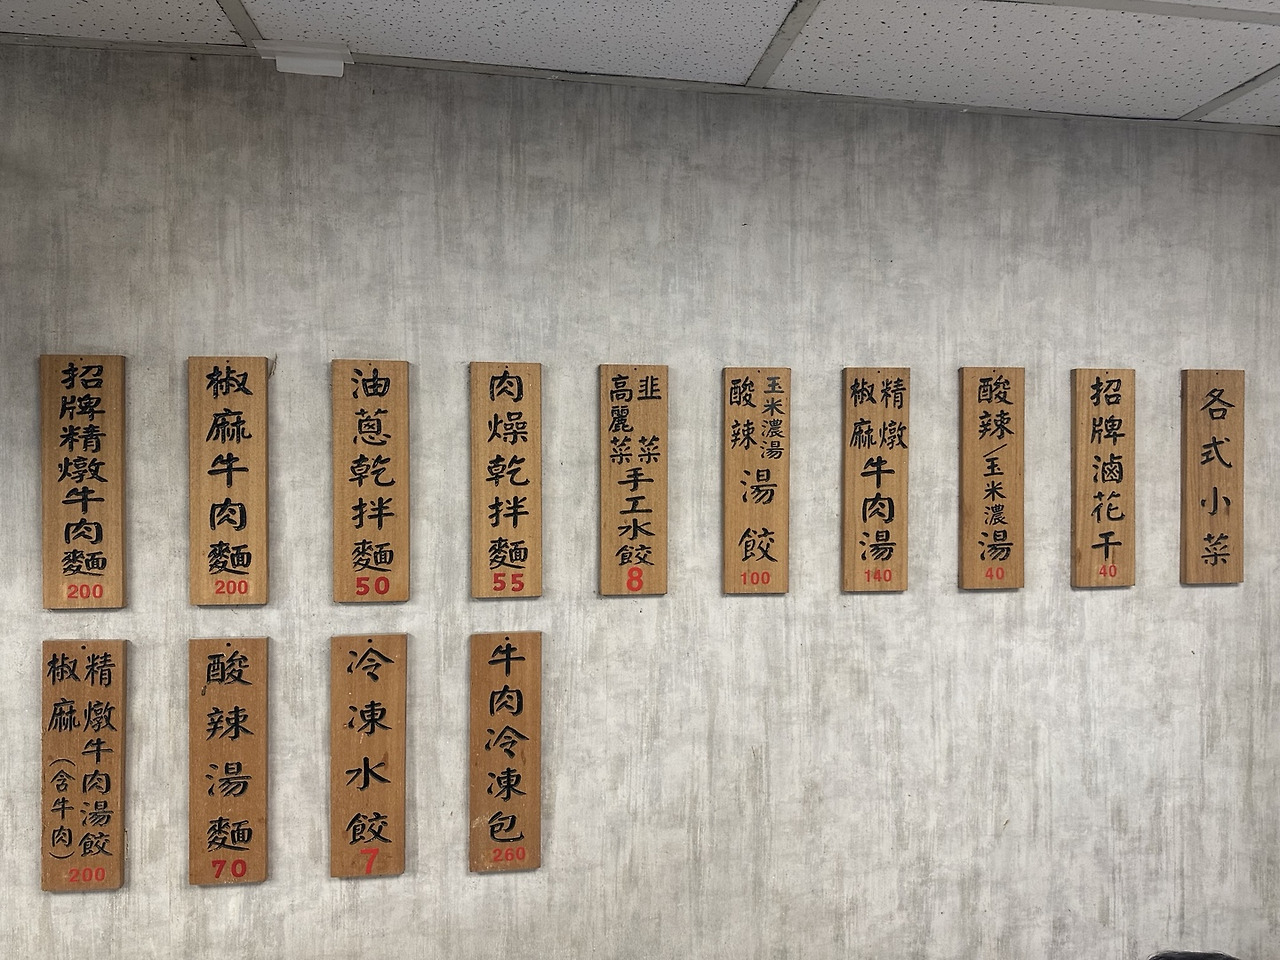 招牌精燉牛肉麵
200
椒麻牛肉麵
200
油蔥乾拌麵
50
肉燥乾拌麵
55
韭菜
高麗菜
手工水餃
8
玉米濃湯
酸辣
湯餃
100
精燉
椒麻
牛肉湯
140
酸辣/玉米濃湯
40
招牌滷花干
40
各式小菜
精燉牛肉湯餃
椒麻
(含牛肉)
200
酸辣湯麵
70
冷凍水餃
7
牛肉冷凍包
260